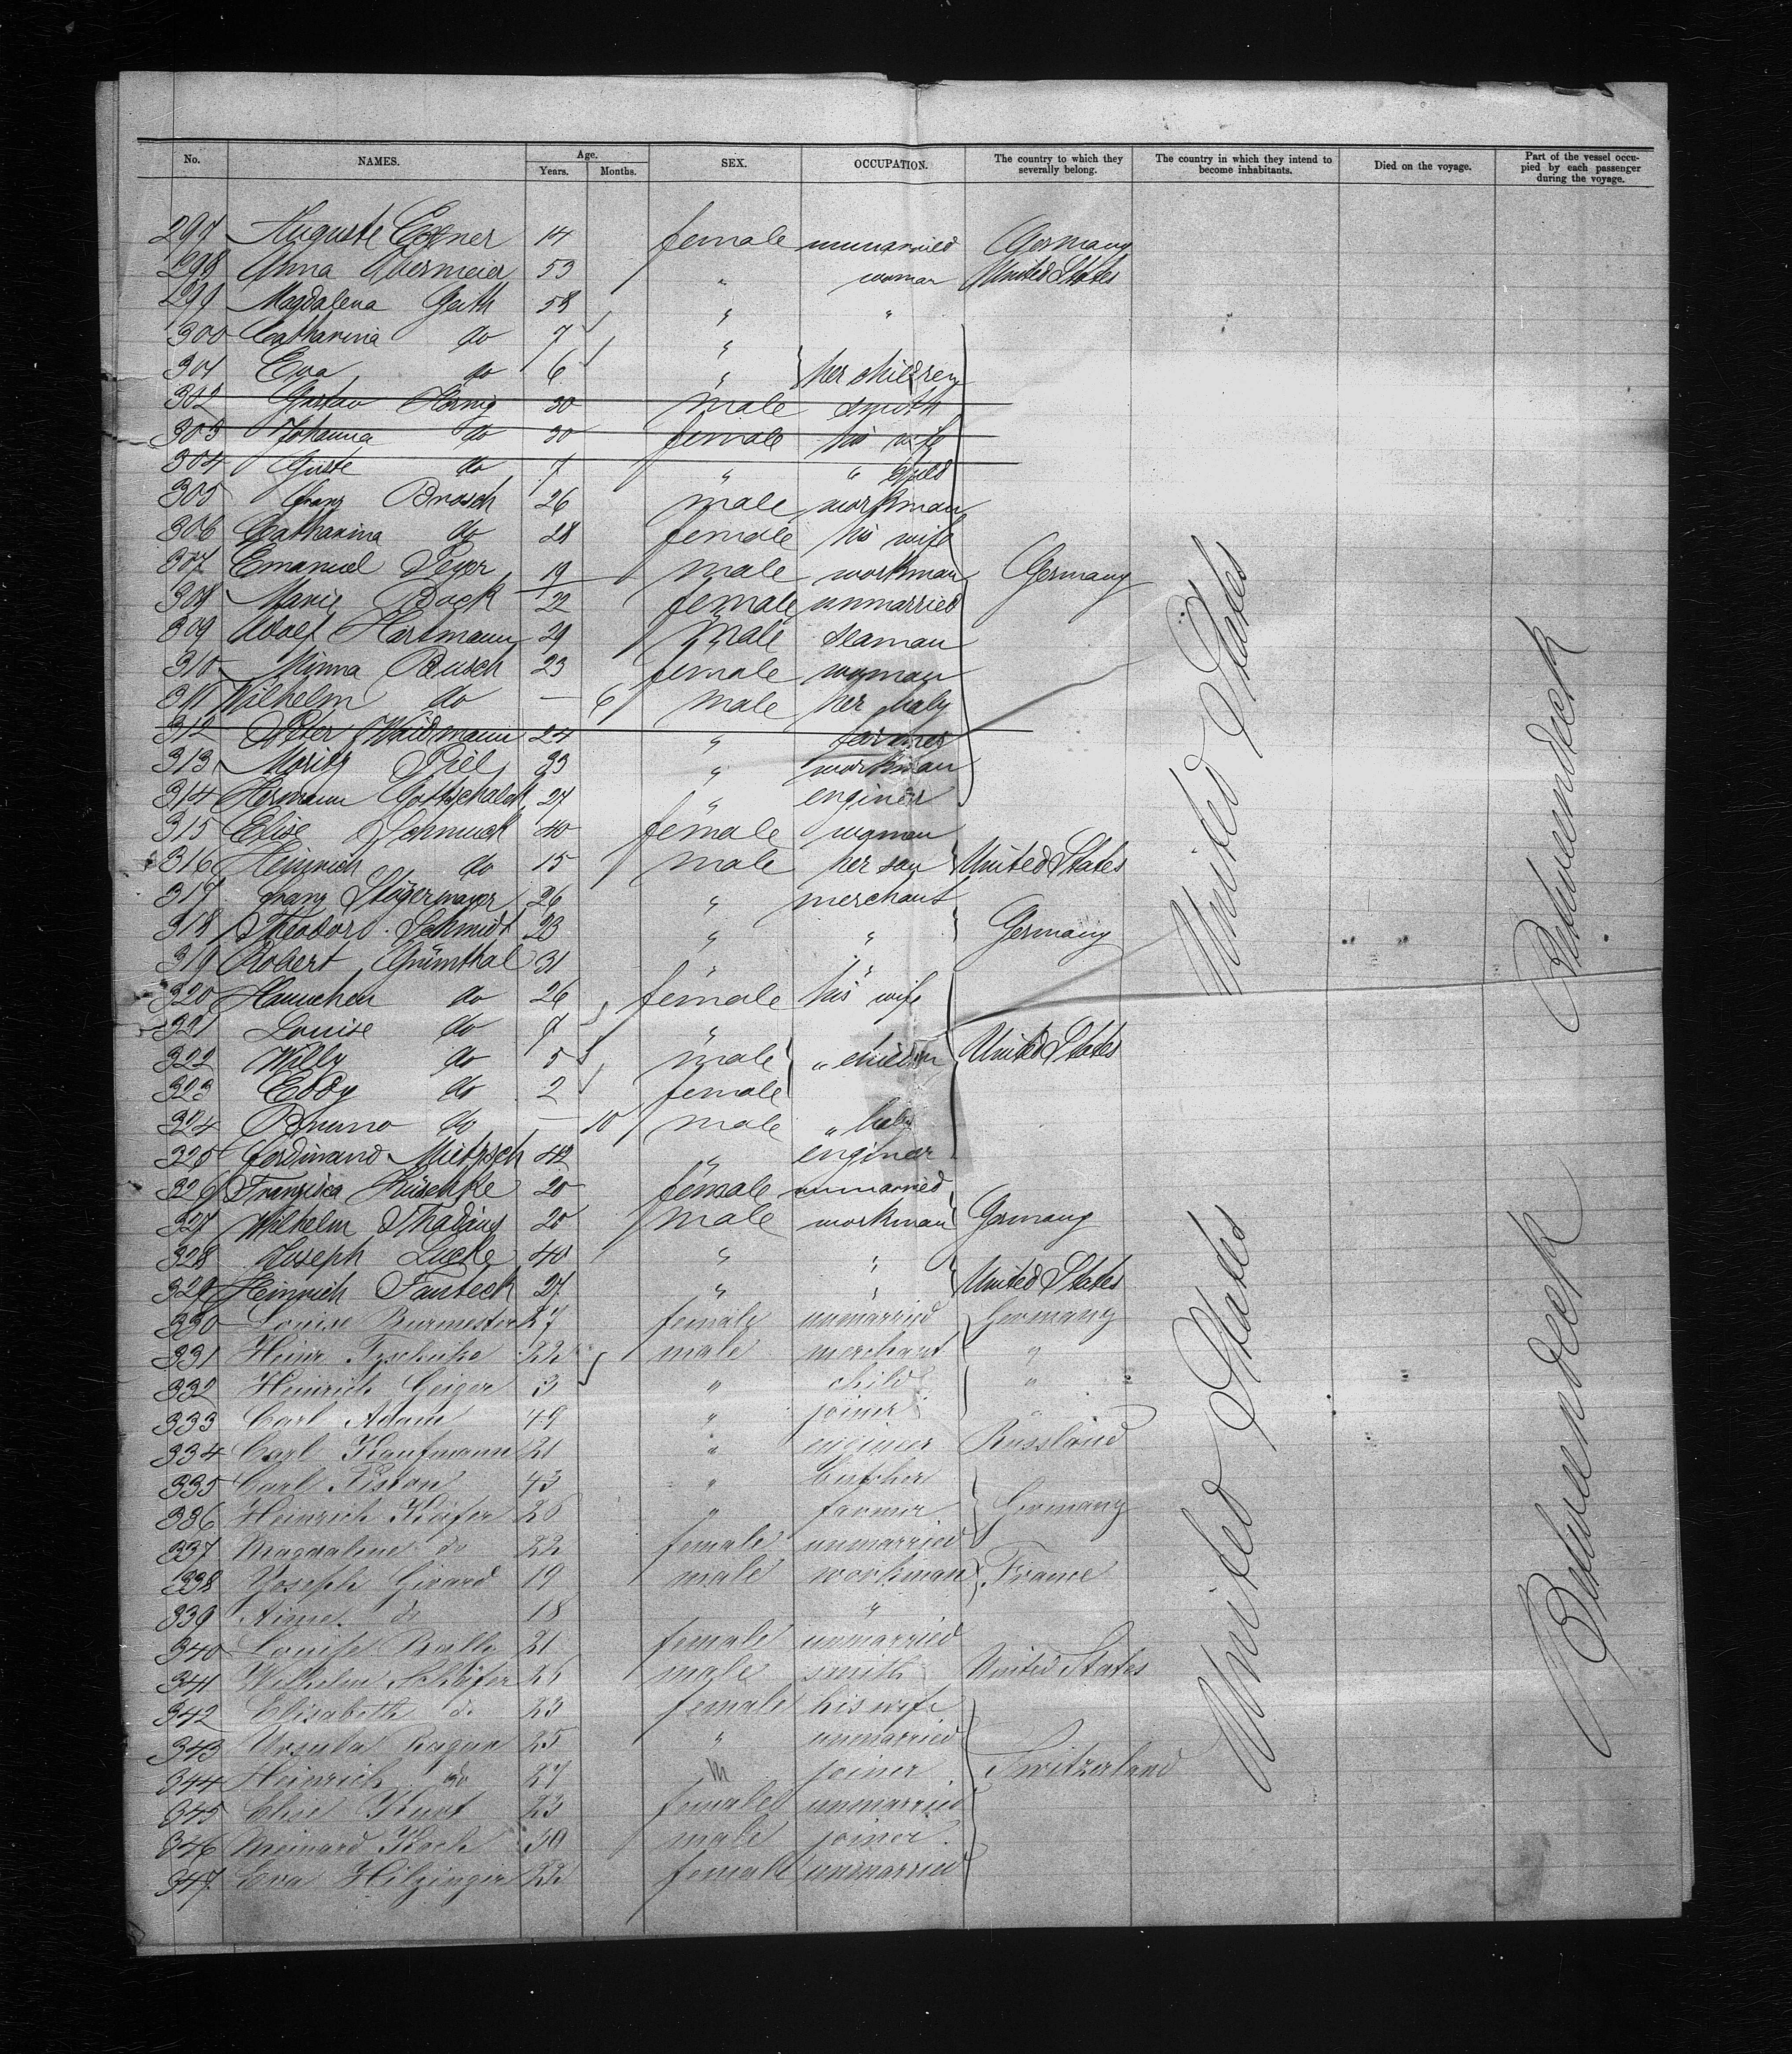 No. NAMES. Age. Years. Months. SEX. OCCUPATION. The country to which they severally belong. The country in which they intend to become inhabitants. Died on the voyage. Part of the vessel occupied by each passenger during the voyage.
297 Auguste Exner 14 female unmarried Germany
298 Anna Obermeier 53 " woman United States
299 Magdalena Geith 58 " "
300 Catharina do 7 "
301 Eva do 6 " her children
302 Gustav Hornig 30 male smith
303 Johanna do 30 female his wife
304 Guste do 7 " " child
305 Franz Brosch 26 male workman
306 Catharina do 28 female his wife
307 Emanuel Peyer 19 male workman Germany
308 Marie Bock 22 female unmarried
309 Adolf Hartmann 29 male seaman
310 Minna Busch 23 female woman
311 Wilhelm do — 6 male her baby
312 Peter Waidmann 24 " farmer
313 Moritz Piel 33 " workman
314 Hermann Gottschalck 27 " engineer
315 Elise Schmuck 40 female woman
316 Heinrich do 15 male her son United States
317 Franz Stögermayer 26 " merchant
318 Theodor Schmidt 23 " " Germany
319 Robert Grünthal 31 " "
320 Hannchen do 26 female his wife
321 Louise do 7 "
322 Willy do 5 male " children United States
323 Eddy do 2 female
324 Bruno do — 10 male " baby
325 Ferdinand Mietzsch 42 " engineer
326 Franzisca Büschke 20 female unmarried
327 Wilhelm Thadäus 20 male workman Germany
328 Joseph Lucke 40 " "
329 Heinrich Fanteck 27 " " United States
330 Louise Burmester 27 female unmarried Germany
331 Heinr Tzschucke 22 male merchant "
332 Heinrich Geiger 3 " child "
333 Carl Adam 49 " joiner
334 Carl Kaufmann 21 " engineer Russland
335 Carl Piston 43 " butcher
336 Heinrich Käfer 20 " farmer Germany
337 Magdalene do 22 female unmarried
338 Joseph Girard 19 male workman France
339 Aime do 18 "
340 Louise Bally 21 female unmarried
341 Wilhelm Schäfer 25 male smith United States
342 Elisabeth do 23 female his wife
343 Ursula Ragan 25 " unmarried
344 Heinrich do 27 m joiner Switzerland
345 Elise Kunt 23 female unmarried
346 Meinard Koch 30 male joiner
347 Eva Hilzinger 22 female unmarried
United States
Betweendeck
United States
Betweendeck